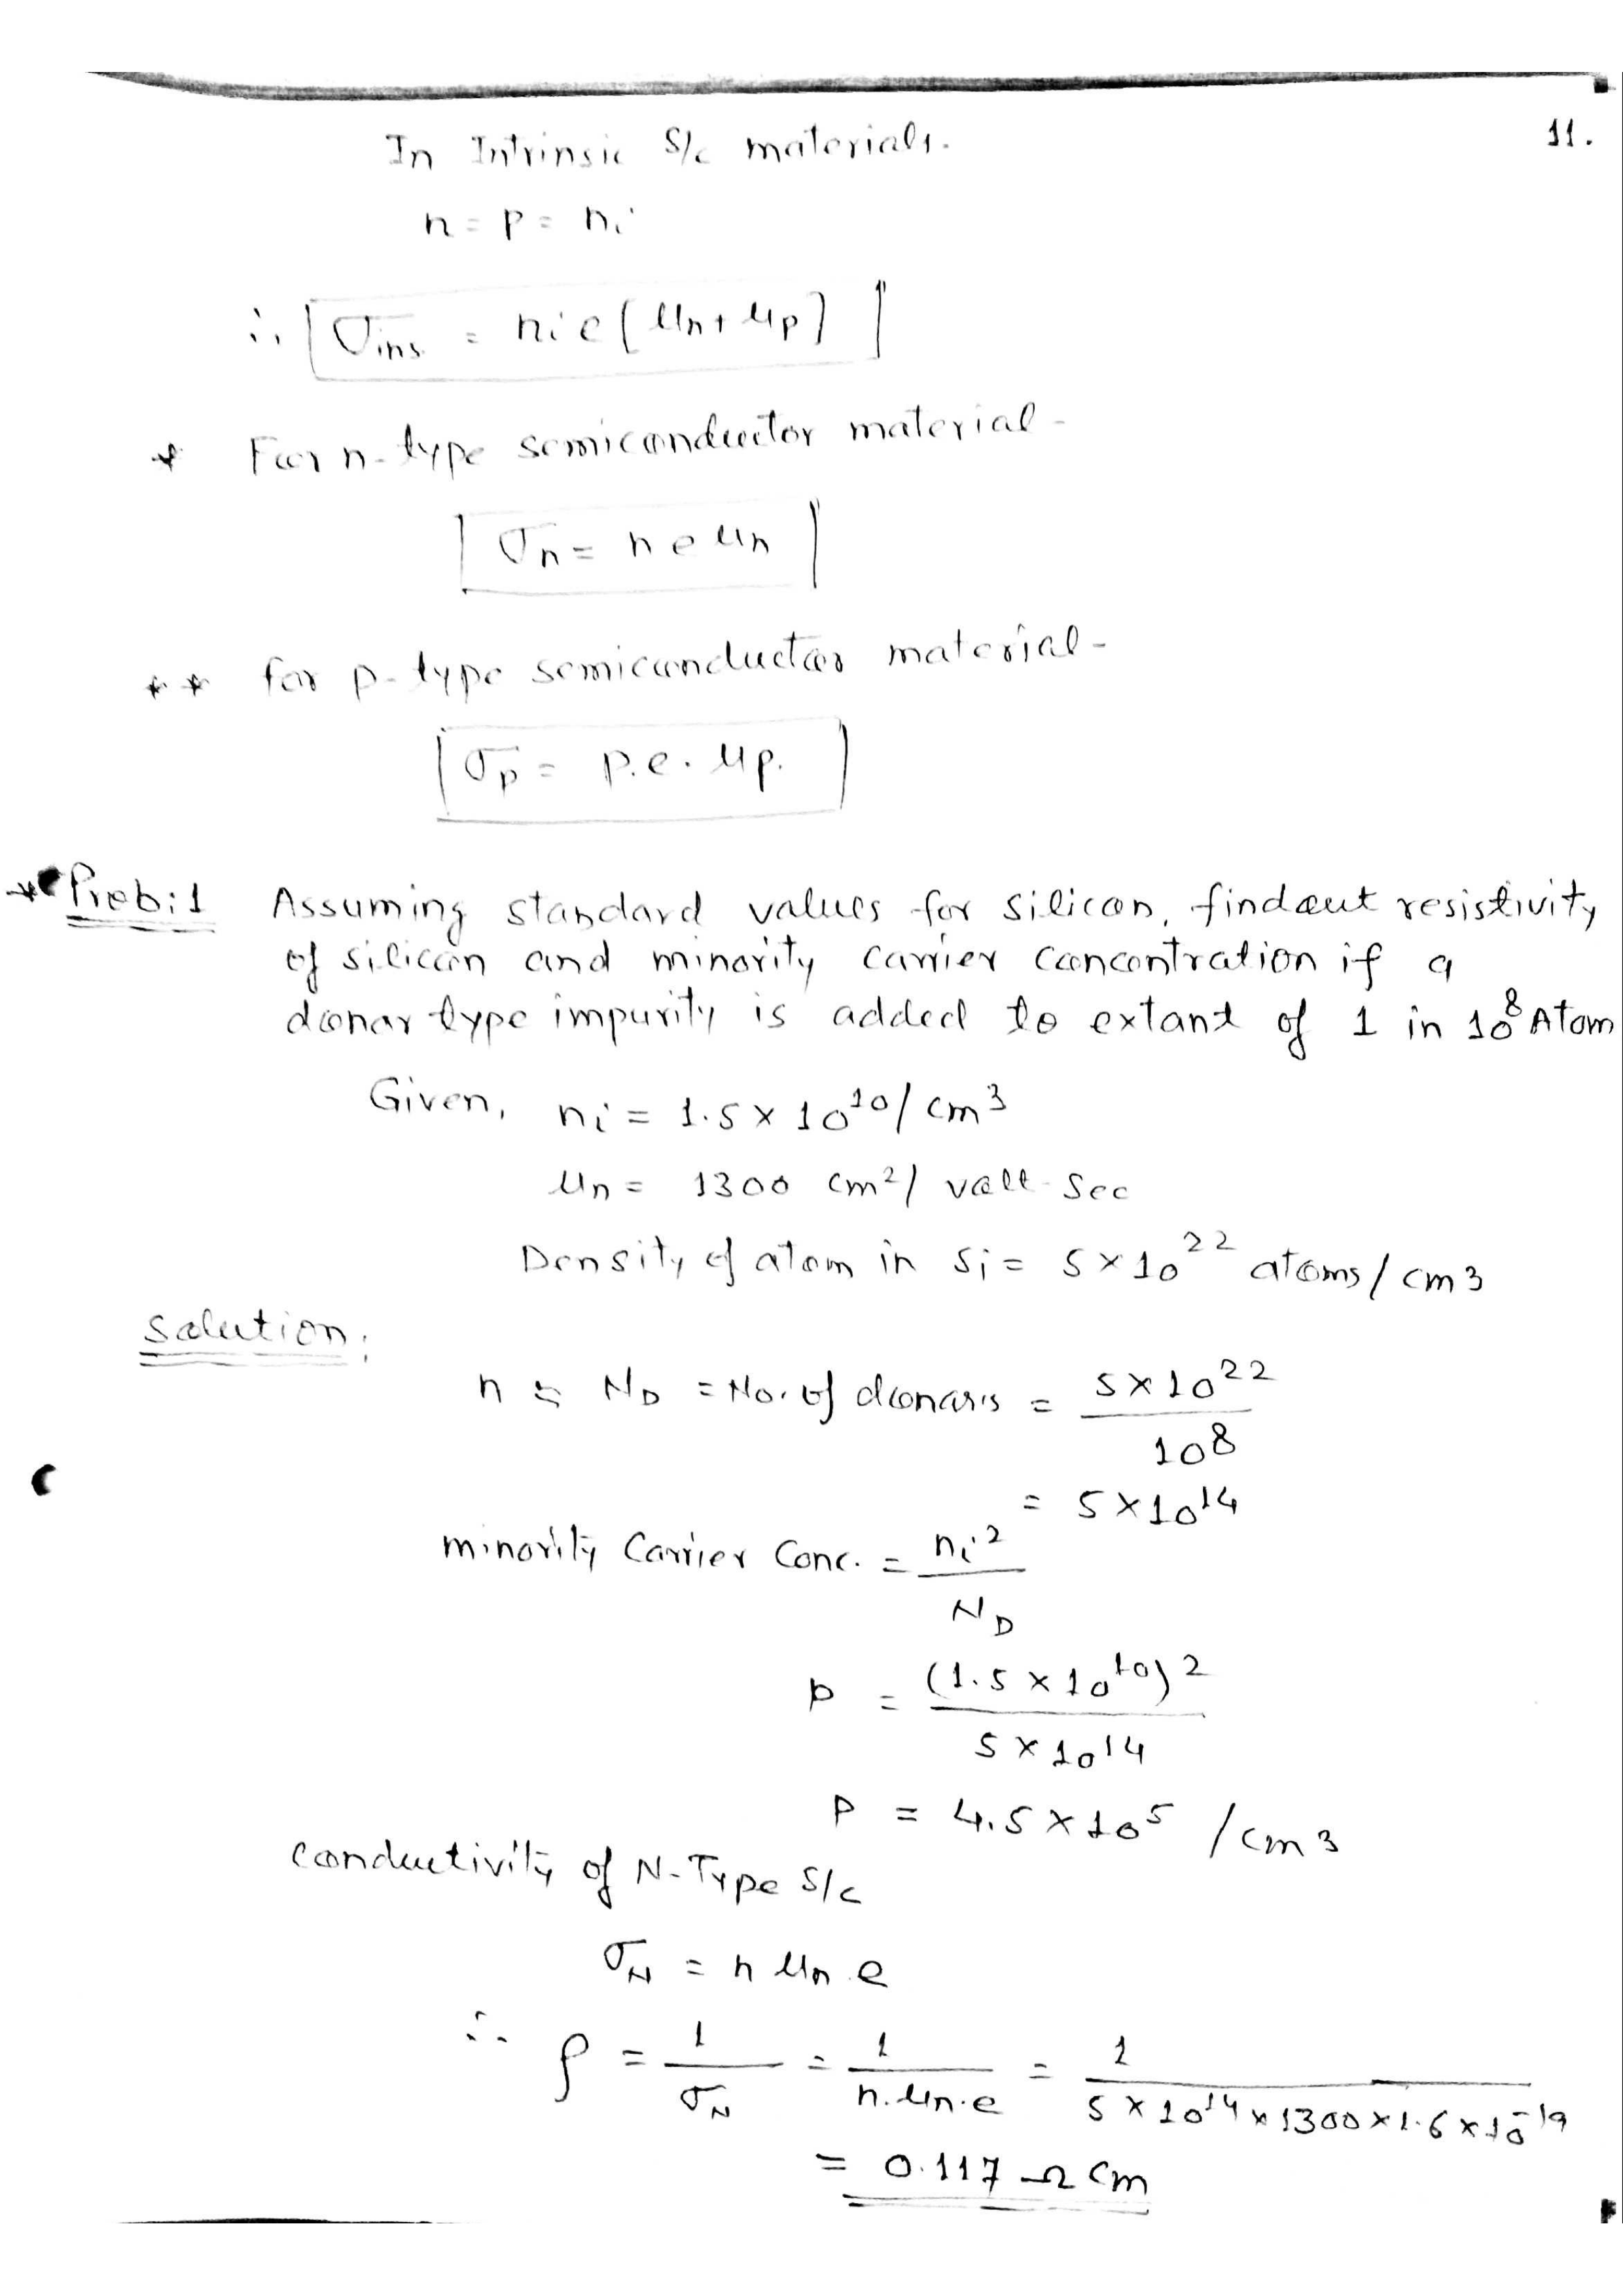 11.
In Intrinsic S/c materials.
n = p = ni
∴ σins. = nie [μn + μp]
* For n-type semiconductor material -
σn = n e μn
** for p-type semiconductor material -
σp = p.e. μp.
* Prob:1 Assuming standard values for silicon, findout resistivity
of silicon and minority carrier concentration if a
donar type impurity is added to extant of 1 in 10⁸ Atom
Given, ni = 1.5 × 10¹⁰/cm³
μn = 1300 cm²/volt-sec
Density of atom in Si = 5×10²² atoms/cm3
Solution:
n ≈ ND = No. of donars = 5×10²² / 10⁸
= 5×10¹⁴
minority Carrier Conc. = ni² / ND
p = (1.5 × 10¹⁰)² / 5 × 10¹⁴
p = 4.5 × 10⁵ /cm3
conductivity of N-Type S/c
σN = n μn e
∴ ρ = 1/σN = 1/n.μn.e = 1 / 5 × 10¹⁴ × 1300 × 1.6 × 10⁻¹⁹
= 0.117 Ω cm